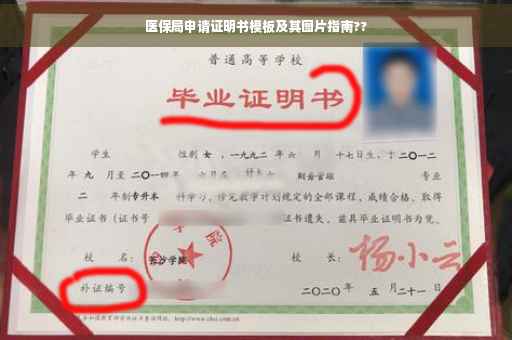 医保局申请证明书模板及其图片指南??
普通高等学校
毕业证明书
学生 性别 女，一九九二年六 月 十七日生，于二〇一二
年 九 月至 二〇一四年 六月在 财务管理 专业
二 年制专升本 科学习，修完教学计划规定的全部课程，成绩合格，取得
毕业证书（证书号 证书遗失，兹具毕业证明书为凭。
校 名： 长沙学院 校 长： 杨小云
补证编号 二〇二〇年 五 月二十一日
http://www.chsi.com.cn